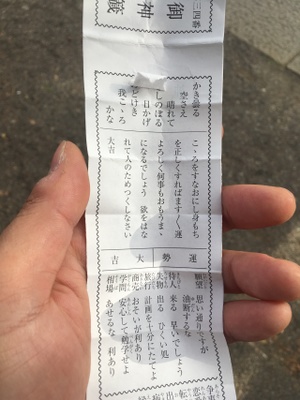 三四番
御神籤
かき曇る
空さえ
晴れて
しのぼる
日かげ
のどけき
我こゝろ
かな
こゝろをすなおにし身もち
を正しくすればます〱運
よろしく何事もおもうまゝ
になるでしょう 欲をはな
れて人のためつくしなさい
大吉
運勢大吉
願望 思い通りですが
油断するな
待人 来る 早いでしょう
失物 出る ひくい処
旅行 計画を十分にたてよ
商売 おそいが利あり
学問 安心して勉学せよ
相場 あせるな 利あり